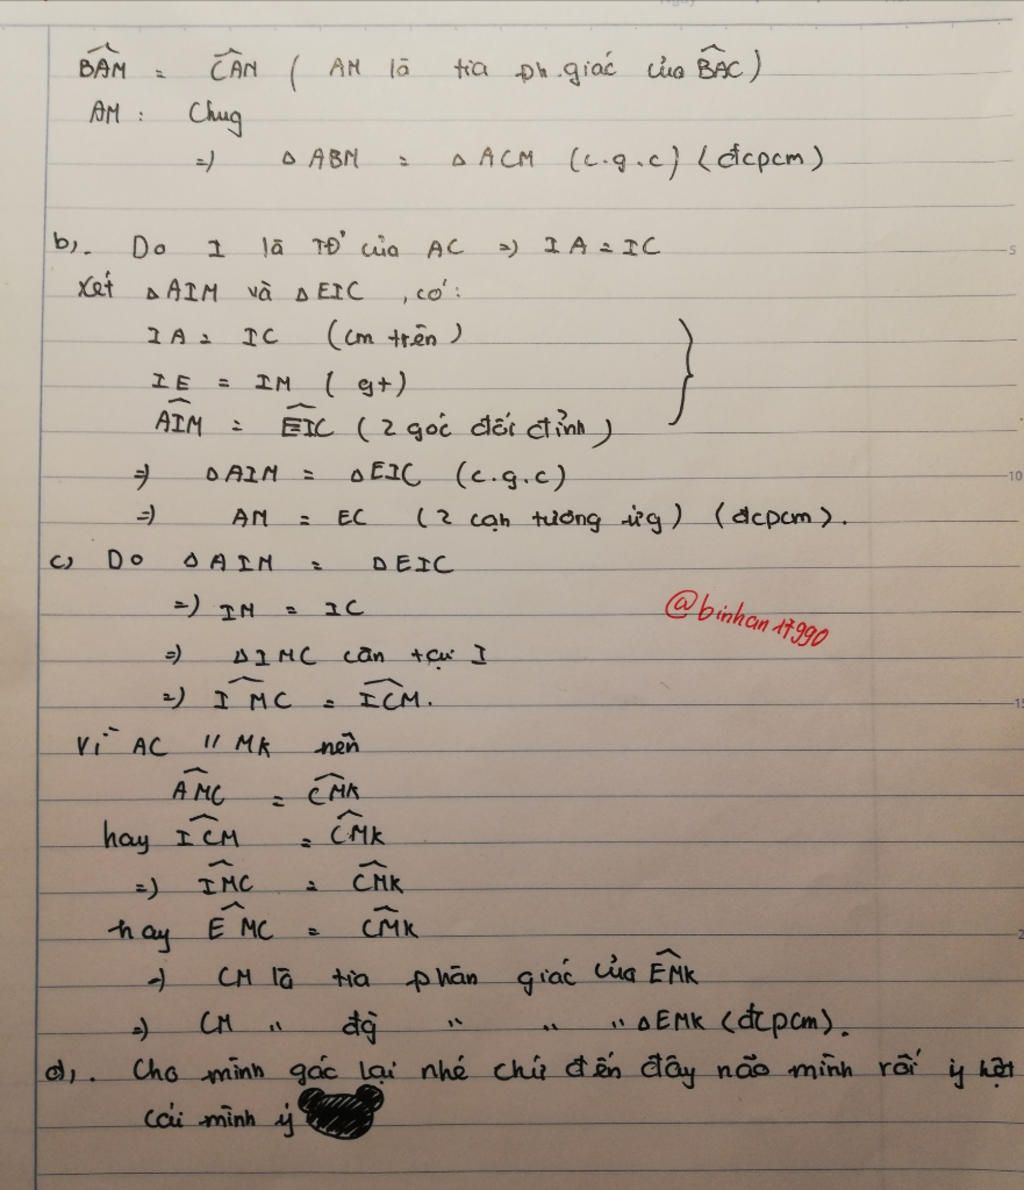 BAM̂ = CAN̂ ( AM là tia ph.giác của BAĈ )
AM : Chug
=) Δ ABM = Δ ACM (c.g.c) (đcpcm)
b). Do I là TĐ' của AC =) IA = IC
Xét Δ AIM và Δ EIC , có :
IA = IC (cm trên)
IE = IM ( gt )
AIM̂ = EIĈ ( 2 góc đối đỉnh )
=) Δ AIM = Δ EIC (c.g.c)
=) AM = EC ( 2 cạh tương ứg ) (đcpcm).
c) Do Δ AIM = Δ EIC
=) IM = IC
@binhan17990
=) Δ IMC cân tại I
=) IMĈ = ICM̂.
Vì AC // MK nên
AMĈ = CMK̂
hay ICM̂ = CMK̂
=) IMĈ = CMK̂
hay EMĈ = CMK̂
=) CM là tia phân giác của EMK̂
=) CM " đg " " " Δ EMK (đcpcm).
d). Cho mình gác lại nhé chứ đến đây não mình rối ý hệt
cái mình ý